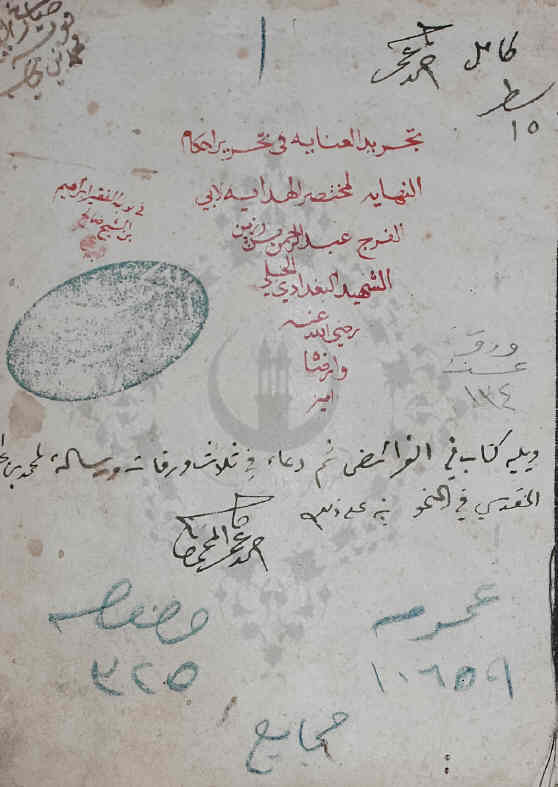 كامل
احمد عمر
سطر
١٥
تجريد العنايه في تحرير احكام
النهايه لمختصر الهدايه لابي
الفرج عبد الرحمن بن رزين
الشهيد البغدادي الحنبلي
رضي الله عنه
وارضاه
امين
في نوبة الفقير ابراهيم
بن الشيخ صالح
ورق
عدد
١٣٤
ويليه كتاب في الفرائض ثم دعاء في ثلاث ورقات ورسالة لمحمد بن
المقدسي في النحو نبه على ذلك
احمد عمر المحمصاني
خصوصيه
٣٢٥
عموميه
١٠٦٥٩
مجاميع